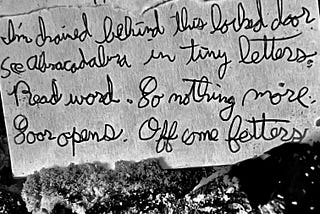 I'm chained behind this locked door.
See Abracadabra in tiny letters.
Read word. Do nothing more.
Door opens. Off come fetters.